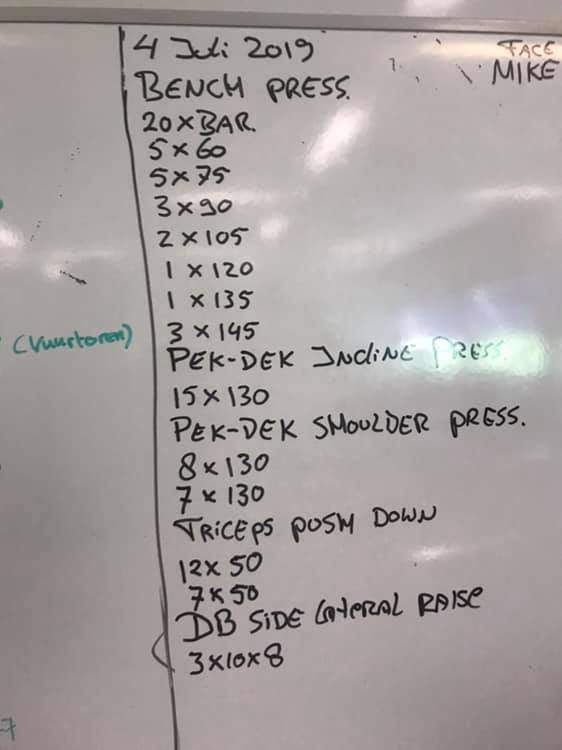 4 Juli 2019
FACE
MIKE
BENCH PRESS.
20 x BAR.
5 x 60
5 x 75
3 x 90
2 x 105
1 x 120
1 x 135
(Vuurtoren)
3 x 145
PEK-DEK INCLINE PRESS.
15 x 130
PEK-DEK SHOULDER PRESS.
8 x 130
7 x 130
TRICEPS POSH DOWN
12 x 50
7 x 50
DB SIDE LATERAL RAISE
3 x 10 x 8
7